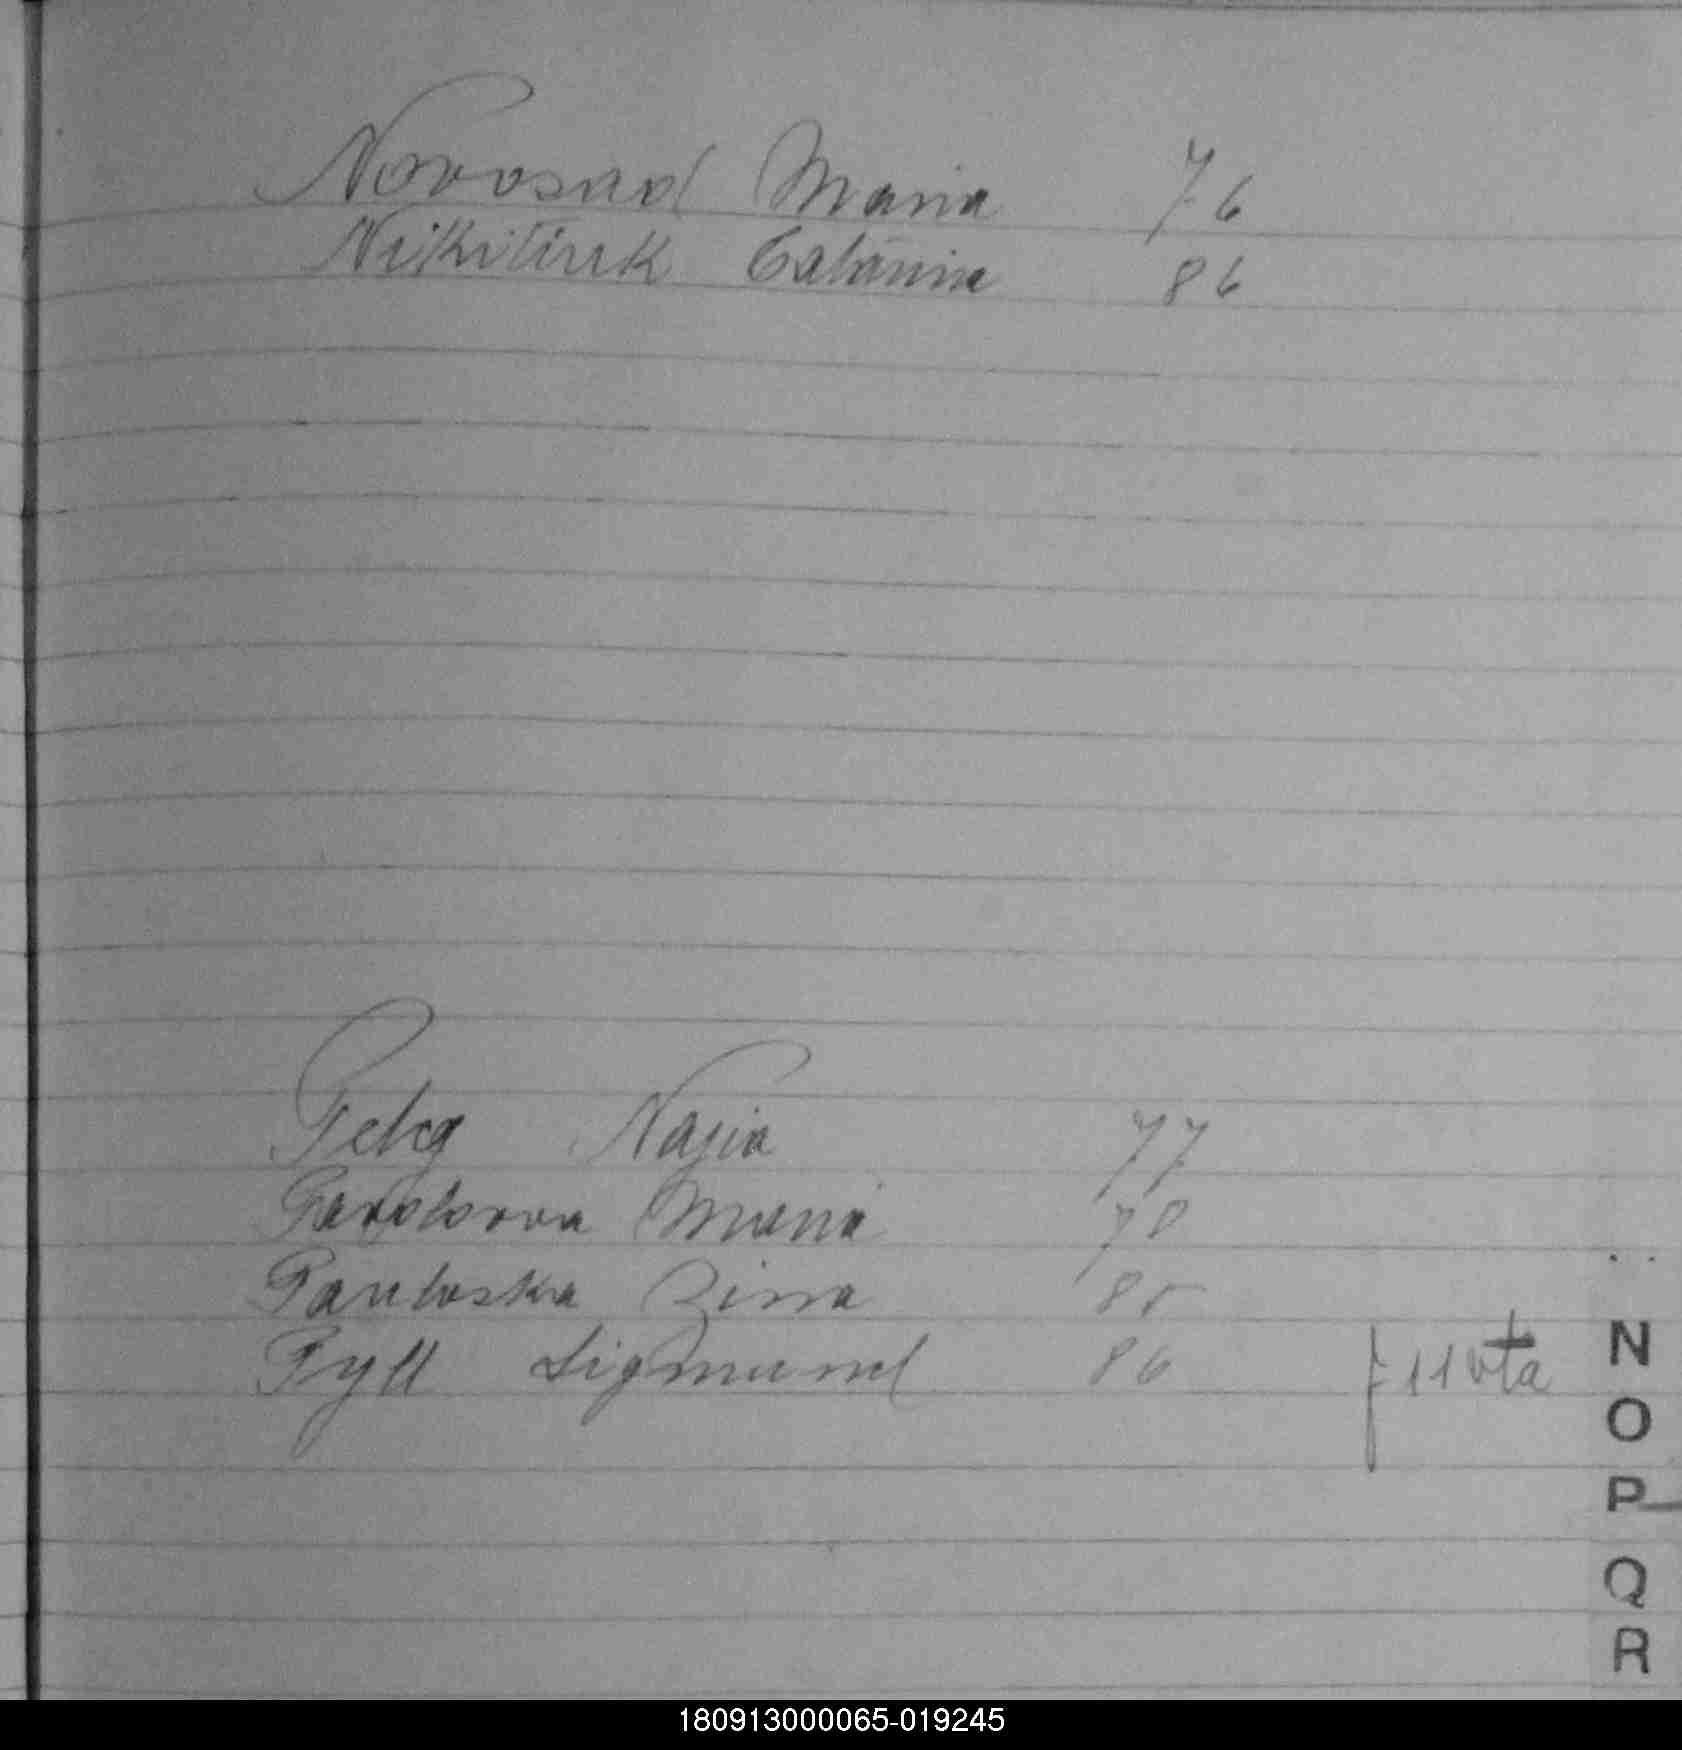 Novosad Maria 76
Nikitiuk Catarina 86
Nasia 77
Maria 78
Pauloska Zina 85
Pyll Sigmund 86
N
O
P
Q
R
180913000065-019245